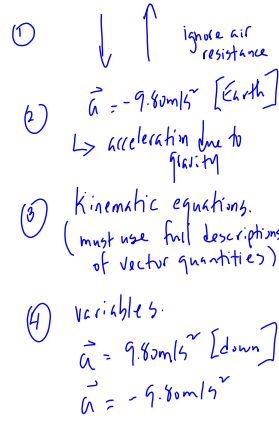 ① ignore air
resistance
② a⃗ = -9.80m/s² [Earth]
↳ acceleration due to
gravity
③ Kinematic equations.
(must use full descriptions
of vector quantities)
④ variables.
a⃗ = 9.80m/s² [down]
a⃗ = -9.80m/s²